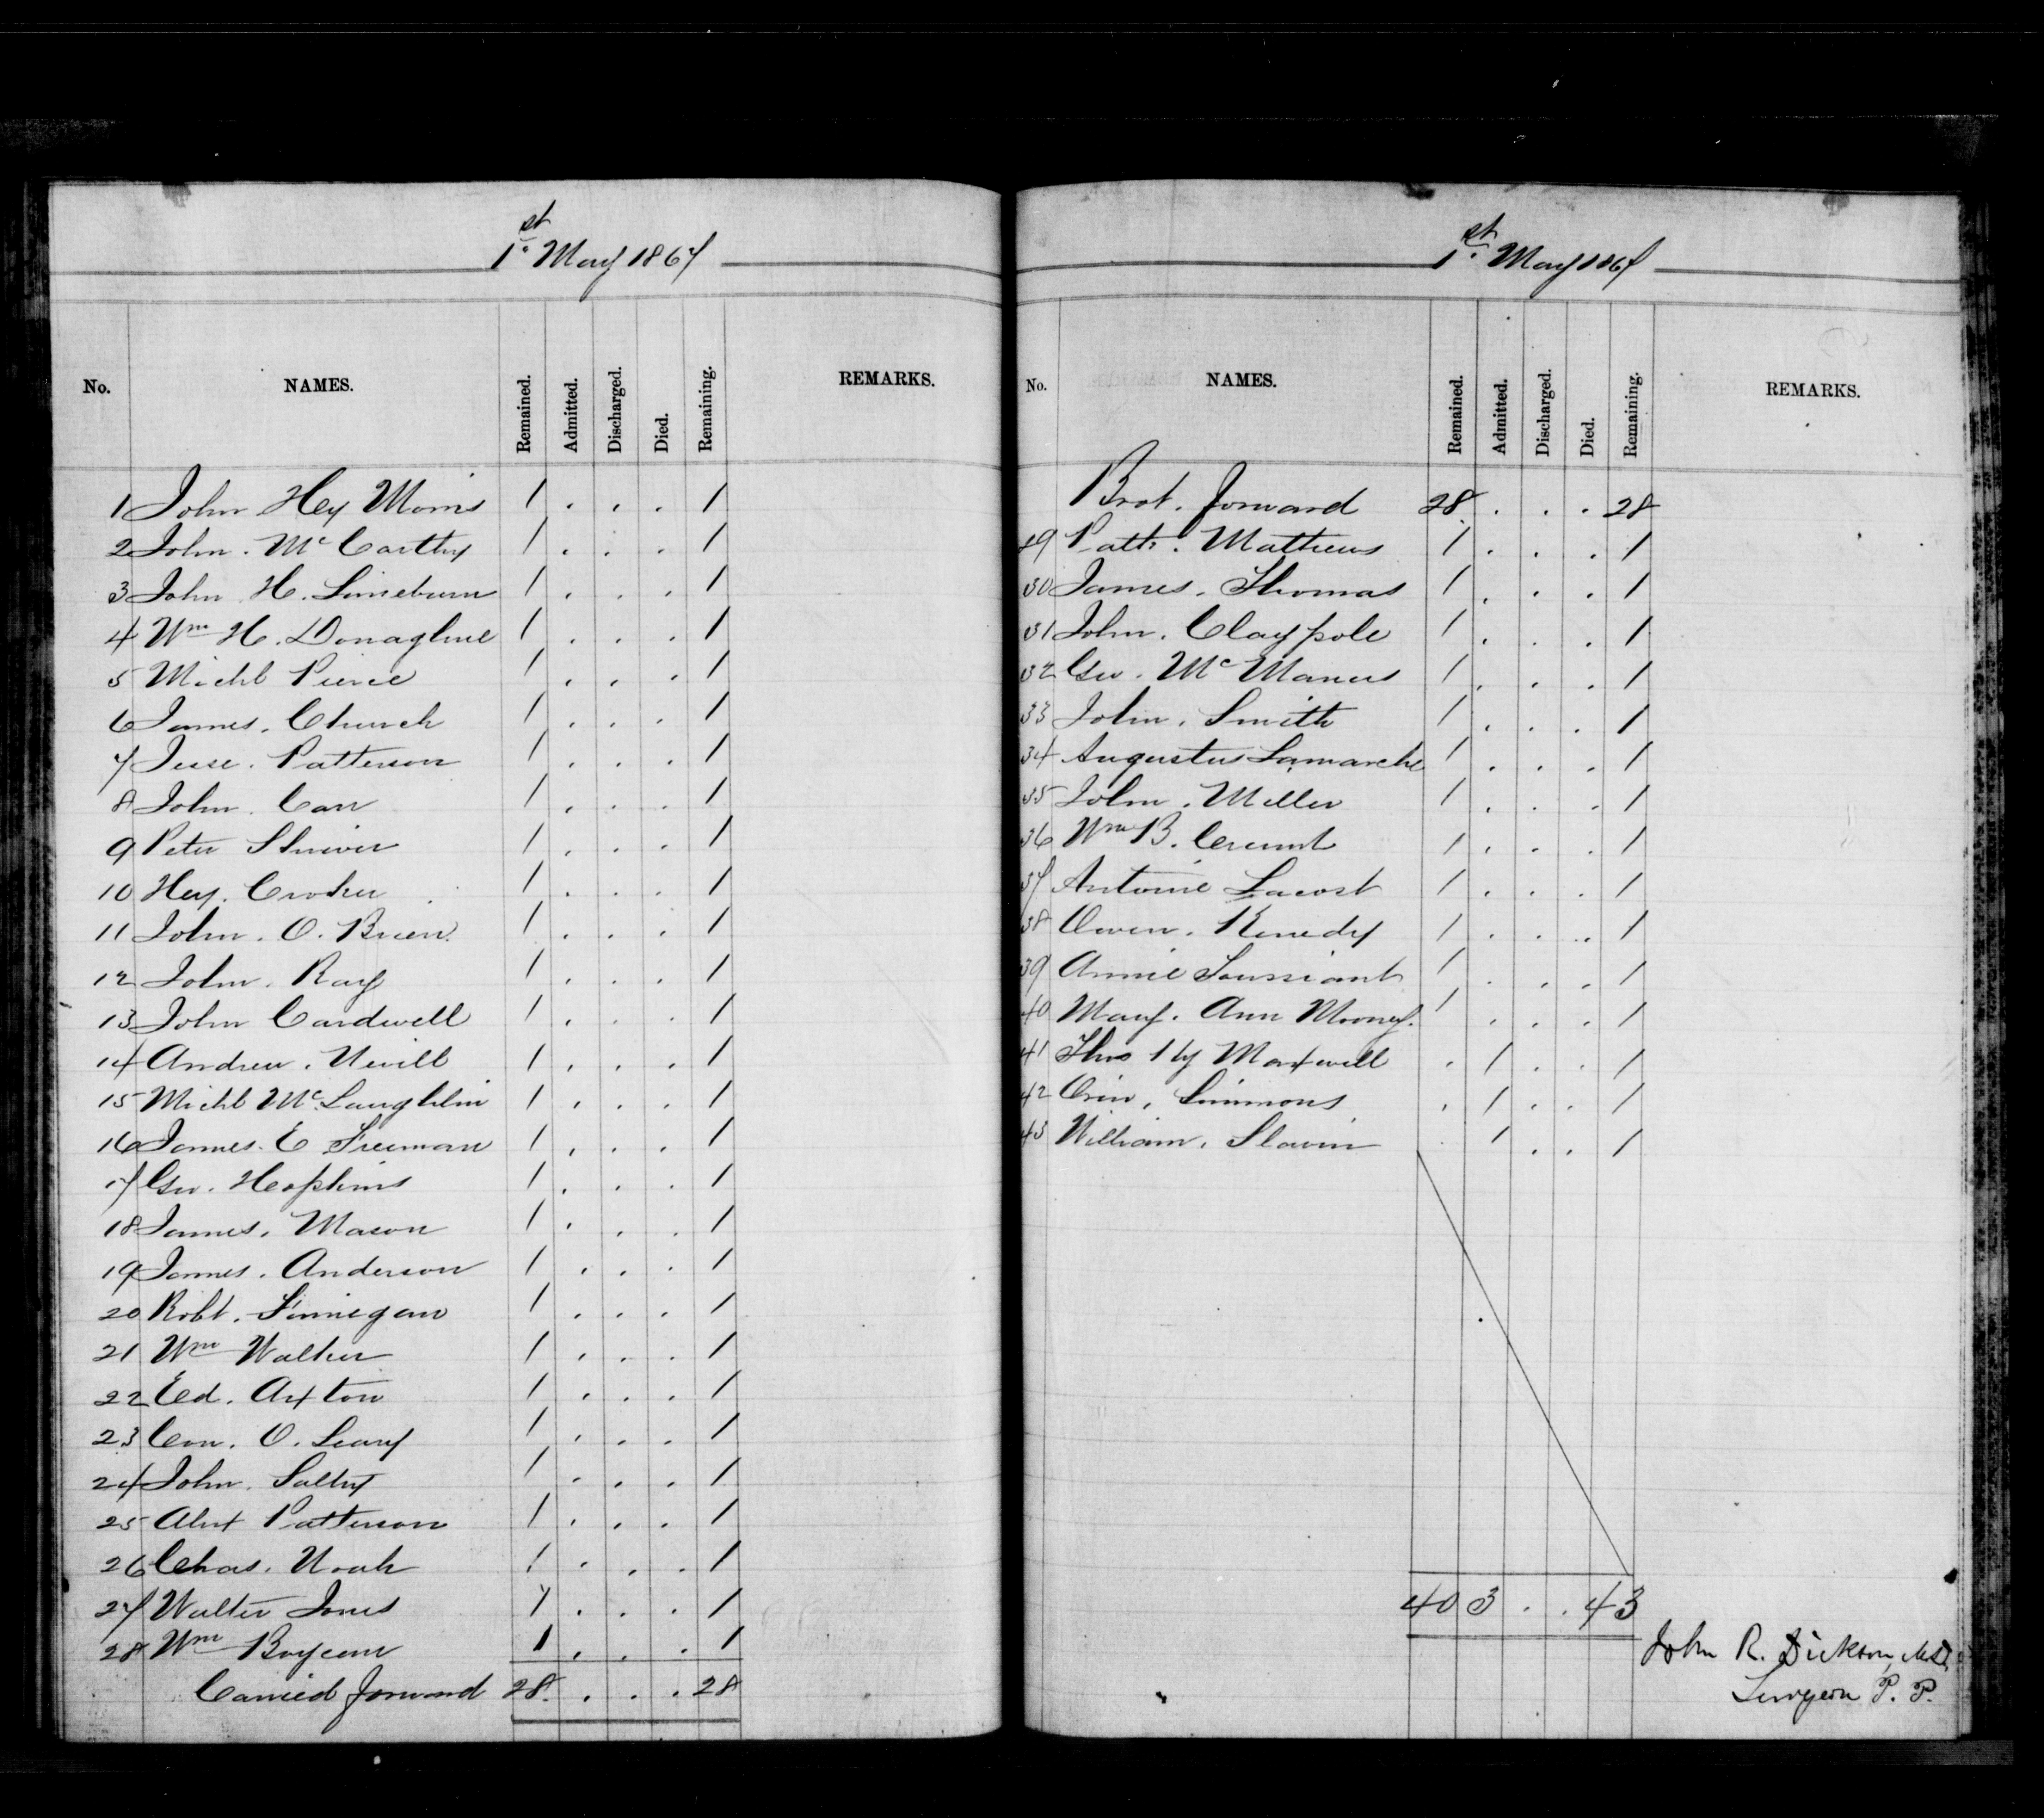 1st May 1867
No. NAMES. Remained. Admitted. Discharged. Died. Remaining. REMARKS.
1 John Hey Morris 1 . . . 1
2 John. McCarthy 1 . . . 1
3 John H. Limeburn 1 . . . 1
4 Wm H. Donaghue 1 . . . 1
5 Michl Pierce 1 . . . 1
6 James. Church 1 . . . 1
7 Jesse. Patterson 1 . . . 1
8 John. Carr 1 . . . 1
9 Peter Shriver 1 . . . 1
10 Hey. Croker 1 . . . 1
11 John. O. Brien. 1 . . . 1
12 John. Ray 1 . . . 1
13 John Cardwell 1 . . . 1
14 Andrew. Nevill 1 . . . 1
15 Michl McLaughlin 1 . . . 1
16 James. E Freeman 1 . . . 1
17 Geo. Hopkins 1 . . . 1
18 James. Mason 1 . . . 1
19 James. Anderson 1 . . . 1
20 Robt. Finnegan 1 . . . 1
21 Wm Walker 1 . . . 1
22 Ed. Axton 1 . . . 1
23 Con. O. Leary 1 . . . 1
24 John. Saltry 1 . . . 1
25 Alex Patterson 1 . . . 1
26 Chas. Noah 1 . . . 1
27 Walter Jones 1 . . . 1
28 Wm Boyceau 1 . . . 1
Carried forward 28 . . . 28
1st May 1867
No. NAMES. Remained. Admitted. Discharged. Died. Remaining. REMARKS.
Brot. forward 28 . . . 28
29 Patk. Mathews 1 . . . 1
30 James. Thomas 1 . . . 1
31 John. Claypole 1 . . . 1
32 Geo. McManus 1 . . . 1
33 John. Smith 1 . . . 1
34 Augustus Lamarche 1 . . . 1
35 John. Miller 1 . . . 1
36 Wm B. 1 . . . 1
37 Antoine Lacost 1 . . . 1
38 Owen. Kenedy 1 . . . 1
39 Annie Toussiant 1 . . . 1
40 Mary. Ann Mooney. 1 . . . 1
41 Thos Hy Maxwell . 1 . . 1
42 Orin. Simmons . 1 . . 1
43 William. Slavin . 1 . . 1
40 3 . . 43
John R. Dickson, M.D.
Surgeon P. P.